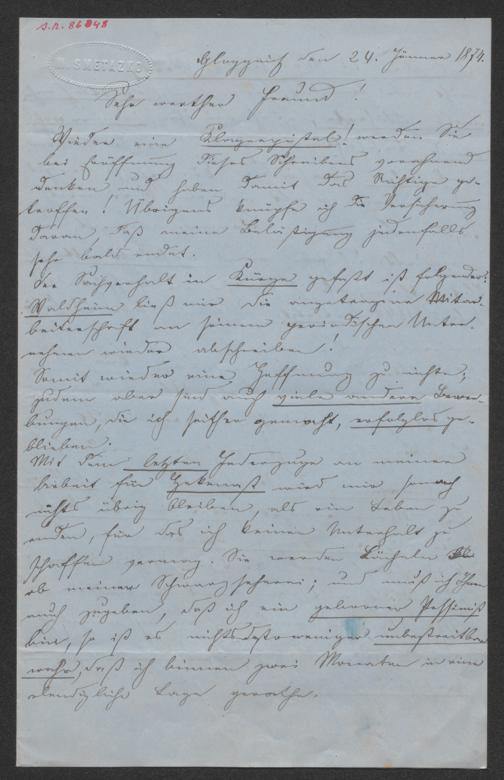 I.N. 86848
SMETAZKO
Gloggnitz den 24. Jänner 1874.
Sehr werther Freund!
Wieder eine Klageepistel! werden Sie
bei Eröffnung dieses Schreibens vorahnend
denken und haben damit das Richtige ge-
troffen! Übrigens knüpfe ich die Versicherung
daran daß meine Belästigung jedenfalls
sehr bald endet.
Der Sachverhalt in Kürze gefaßt ist folgender:
Waldheim ließ mir die angetragene Mitar-
beiterschaft an seinem periodischen Unter-
nehmen wieder abschreiben!
Somit wieder eine Hoffnung zu nichte;
zudem aber sind auch viele andere Bewer-
bungen, die ich seither gemacht, erfolglos ge-
blieben.
Mit dem letzten Federzuge an meiner
Arbeit für wird mir sonach
nichts übrig bleiben, als ein Leben zu
enden, für das ich keinen Unterhalt zu
schaffen vermag. Sie werden lächeln
ob meiner Schwarzseherei; und muß ich Ihnen
auch zugeben, daß ich ein geborner Pessimist
bin, so ist es nichtsdestoweniger unbestreitbar
wahr, daß ich binnen zwei Monaten in eine
elendigliche Lage gerathe.